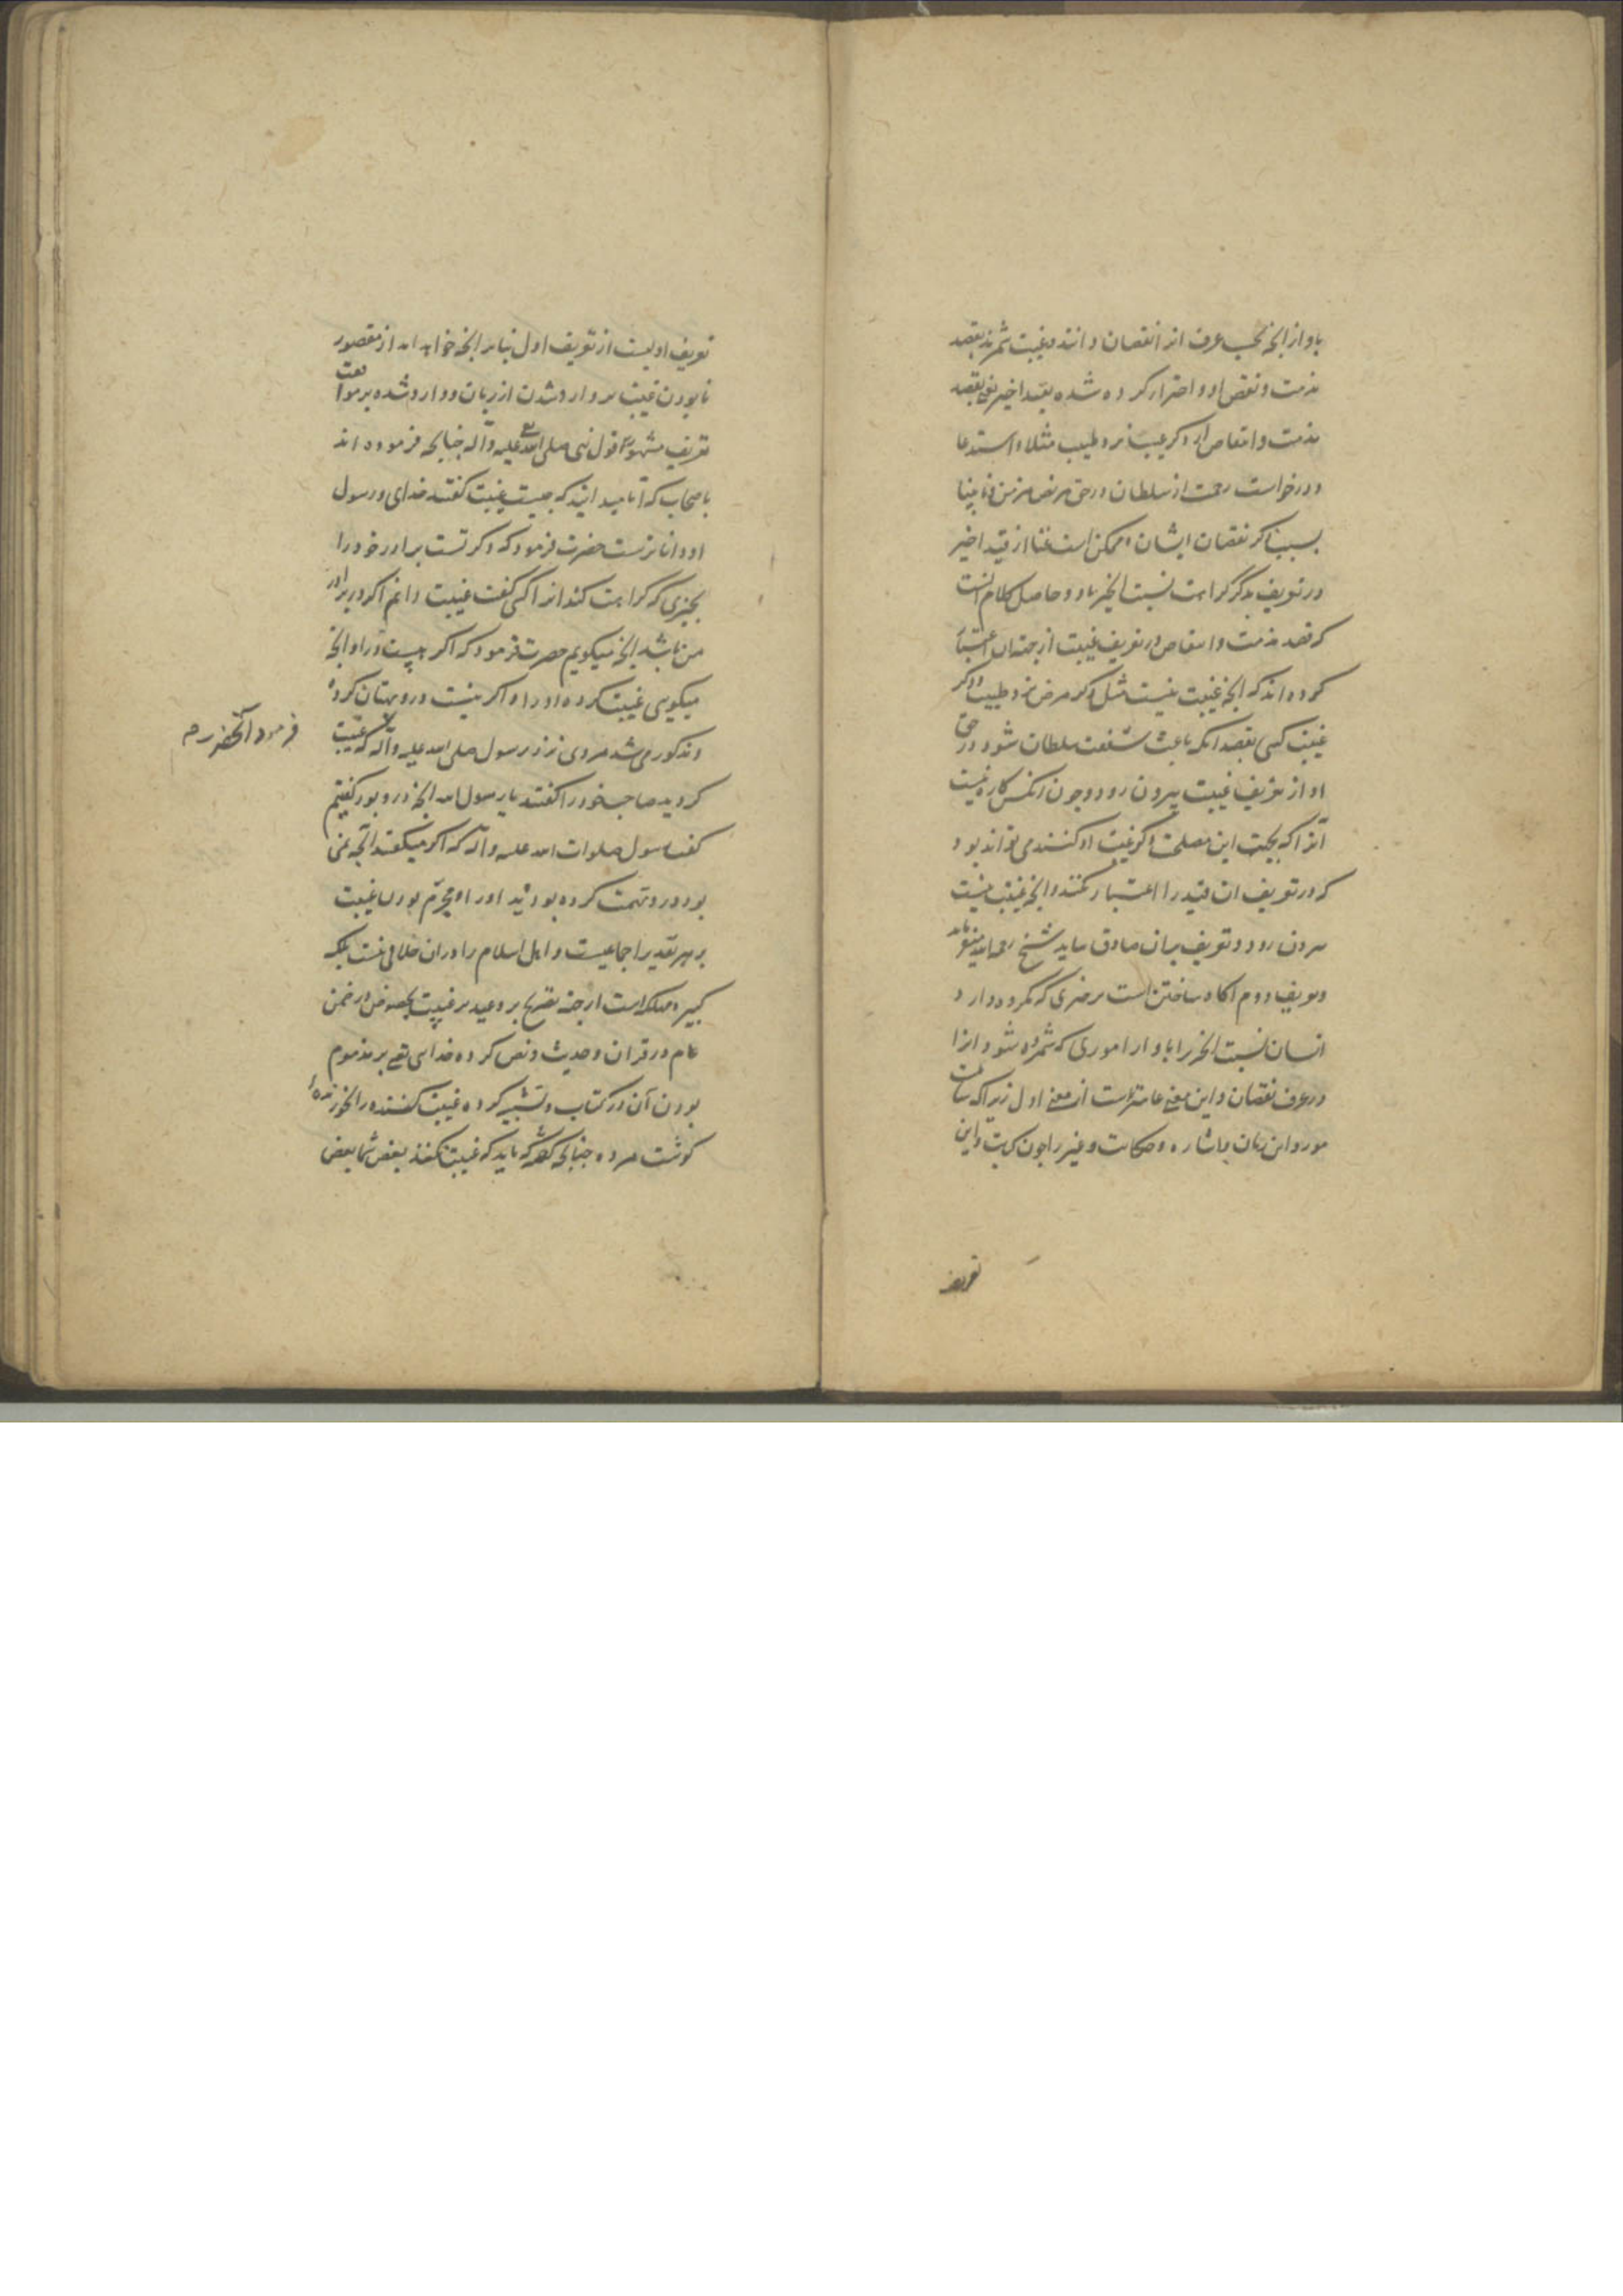 باو از آنچه بحسب عرف انرا نقصان دانند و غیبت شمرند بقصد
مذمت و نقص او و احتراز کرده شده بقید اخیر یعنی بقصد
مذمت و انتقاص از ذکر عیب نزد طبیب مثلا و استدعا
و درخواست رحمت از سلطان در حق مریض مزمن و نابینا
بسبب ذکر نقصان ایشان و ممکن است غنا از قید اخیر
در تعریف بذکر کراهت نسبت آنچیز باو و حاصل کلام انست
که قصد مذمت و انتقاص در تعریف غیبت از جهت ان اعتبار
کرده اند که آنچه غیبت نیست مثل ذکر مرض نزد طبیب و ذکر
غیبت کسی بقصد آنکه باعث شفقت سلطان شود در حق
او از تعریف غیبت بیرون رود و چون آنکس کاره نیست
آنرا که بجهت این مصلحت ذکر غیبت او کنند می تواند بود
که در تعریف ان قید را اعتبار نکنند و آنچه غیبت نیست
بیرون رود و تعریف بران صادق نیاید شیخ رحمه الله میفرماید
و تعریف دوم آکاه ساختن است بر چیزی که مکروه دارد
انسان نسبت آنچیز را باو از اموری که شمرده شود انرا
در عرف نقصان و این معنی عامتر است از معنی اول زیرا که شامل است
مورد این زبان و اشاره و حکایت و غیر را چون کتابت و این
تعریف
تعریف اولیست از تعریف اول بنابر آنچه خواهد امد از مقصور
نابودن غیبت بر وارد شدن از زبان و وارد شده بر موافقت
تعریف مشهور قول نبی صلی الله علیه وآله چنانچه فرموده اند
باصحاب که آیا میدانید که چیست غیبت کفتند خدای و رسول
او داناترست حضرت فرمود که ذکر تست برادر خود را
بچیزی که کراهت کند انرا کسی کفت غیبت دانم اکر در برادر
من باشد آنچه میکویم حضرت فرمود که اکر هست در او آنچه
میکویی غیبت کرده او را و اکر نیست درو بهتان کرده
و مذکور می شد مردی نزد رسول صلی الله علیه وآله که غیبت
فرمود آنحضرت
کردید صاحب خود را کفتند یا رسول الله آنچه درو بود کفتیم
کفت رسول صلوات الله علیه وآله که اکر میکفتید آنچه نمی
بود درو تهمت کرده بودید او را و محرم بودن غیبت
بر هر تقدیر اجماعیست و اهل اسلام را در ان خلافی نیست بلکه
کبیره مهلکه است از جهت تصریح بر وعید بر غیبت بخصوص در ضمن
عام در قران و حدیث و نص کرده خدای تعالی بر مذموم
بودن آن در کتاب و تشبیه کرده غیبت کننده را بخورنده
کوشت مرده چنانچه کفته که باید که غیبت نکند بعض شما بعض